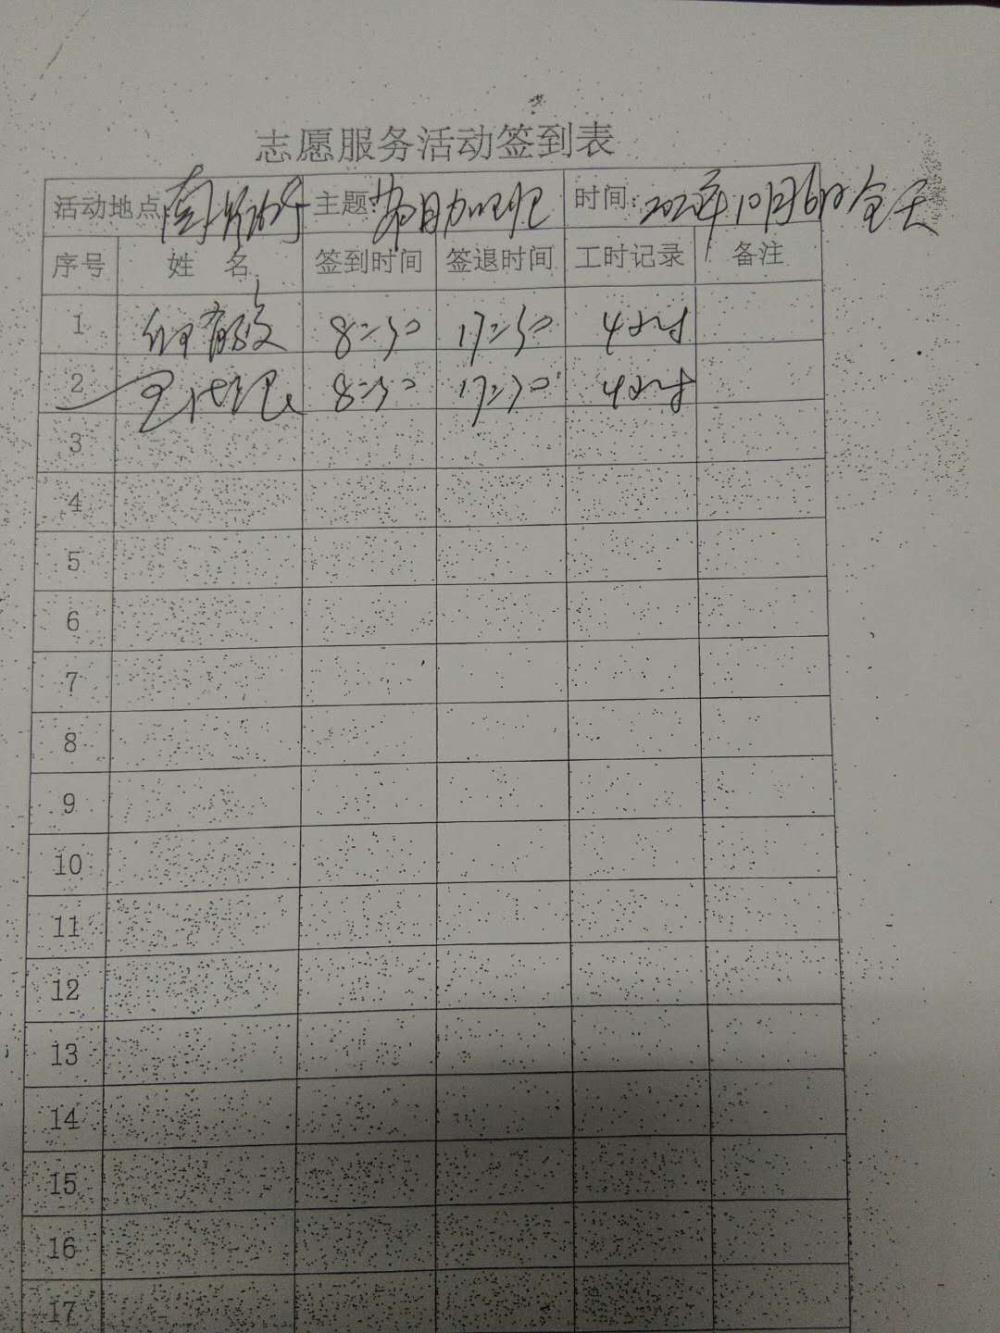 志愿服务活动签到表
活动地点 主题: 时间: 2020年10月6日全天
序号 姓 名 签到时间 签退时间 工时记录 备注
1 8:30 17:30 4小时
2 8:30 17:30 4小时
3
4
5
6
7
8
9
10
11
12
13
14
15
16
17